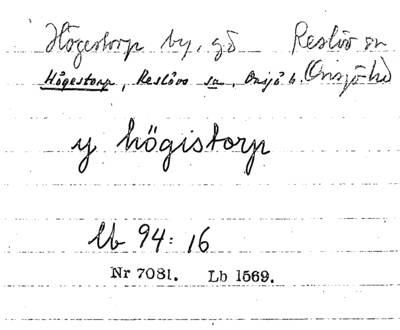 Högestorp by, gd Reslöv sn
Högestorp, Reslövs sn, Onsjö h. Onsjö hd
y högistorp
lb 94: 16
Nr 7081. Lb 1569.